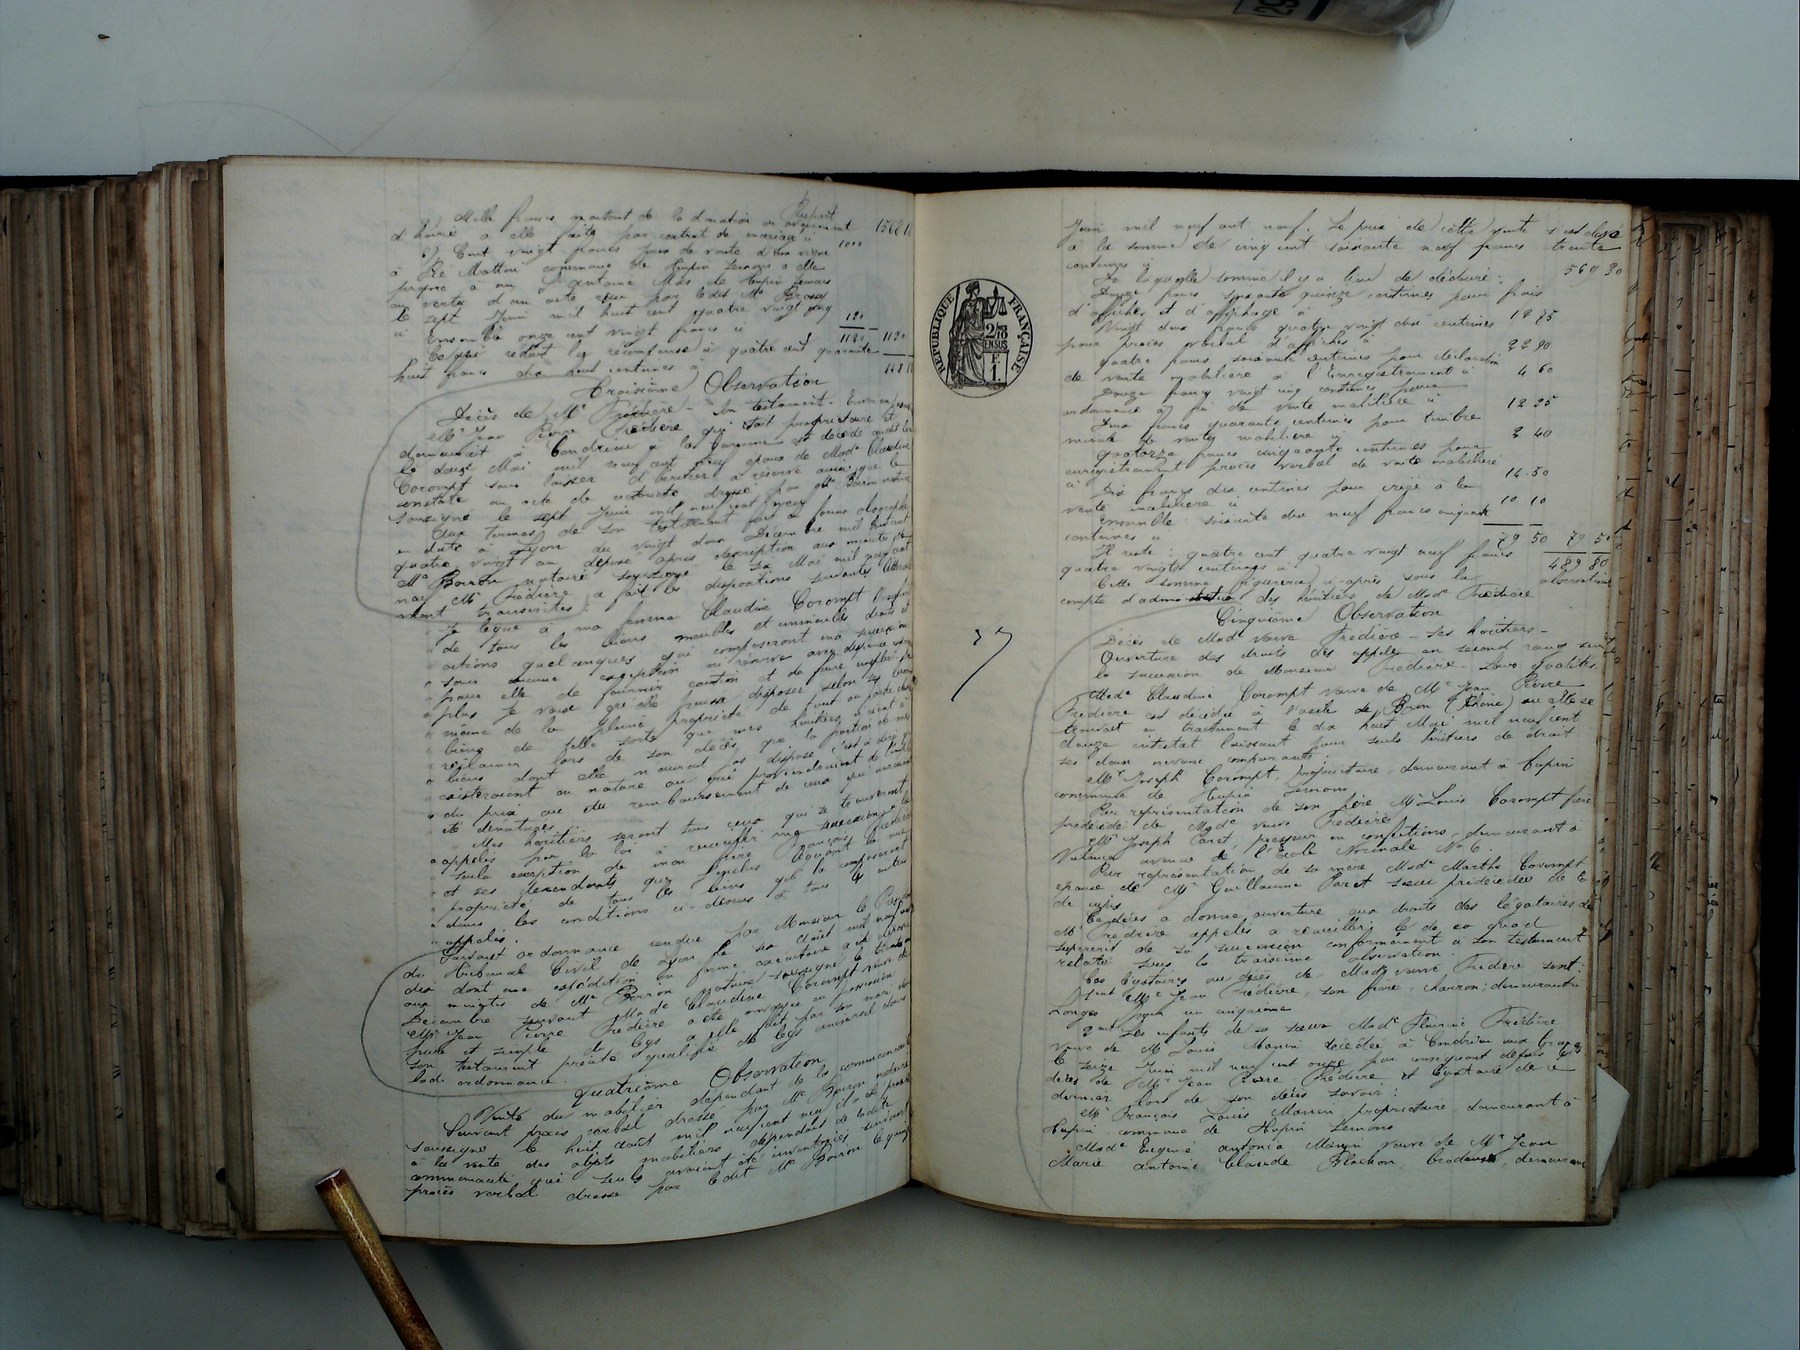 Report 1568 18
2) Mille francs montant de la donation en avancement
d'hoirie à elle faite par contrat de mariage à 1000
3) Cent vingt francs prix de vente d'une vigne
à Pré Mattou commune de Tupin Semons à elle
propre à un Sr Antoine Mas de Tupin Semons
en vertu d'un acte reçu par ledit Me Brossy
le sept Juin mil huit cent quatre vingt
à 120
Ensemble onze cent vingt francs ci 1120 1120
Ce qui réduit la récompense à quatre cent quarante
huit francs dix huit centimes ci 448 18
Troisième Observation
Décès de Mr Frédière - Son testament -
Mr Jean Pierre Frédière qui était propriétaire et
demeurant à Condrieu à la Garenne est décédé audit lieu
le douze Mai mil neuf cent neuf époux de Made Claudine
Corompt sans laisser d'héritier à réserve ainsi que le
constate un acte de notoriété dressé par Me Boiron notaire
soussigné le sept Juin mil neuf cent neuf
Aux termes de son testament fait en forme olographe
en date à Lyon du vingt deux Décembre mil huit cent
quatre vingt un déposé après description aux minutes de
Me Boiron notaire soussigné le six Mai mil neuf cent
neuf Mr Frédière a fait les dispositions suivantes littérale
ment transcrites :
" Je lègue à ma femme Claudine Corompt l'usufruit
" de tous les biens meubles et immeubles droits et
" actions quelconques qui composeront ma succession
" sans aucune exception ni réserve avec dispense
" pour elle de fournir caution et de faire emploi de
" plus Je veux qu'elle puisse disposer selon ses besoins
" même de la pleine propriété de tout ou partie desdits
" biens de telle sorte que mes héritiers n'aient à
" réclamer lors de son décès que la portion de mes
" biens dont elle n'aurait pas disposé c'est à dire qui
" existeraient en nature ou qui proviendraient de l'emploi
" du prix ou du remboursement de ceux qui auraient
" été dénaturés.
" Mes héritiers seront tous ceux qui se trouveront
" appelés par la loi à recueillir ma succession à la
" seule exception de mon frère François Frédière
" et ses descendants auxquels léguant la nue
" propriété de tous les biens qui la composeront
" dans les conditions ci-dessus à tous les autres
" appelés.
Suivant ordonnance rendue par Monsieur le Président
du Tribunal Civil de Lyon le six Août mil neuf cent
dix dont une expédition en forme exécutoire a été déposée
aux minutes de Me Boiron notaire soussigné le
Décembre suivant Made Claudine Corompt veuve de
Mr Jean Pierre Frédière a été envoyée en possession
pure et simple du legs à elle fait par son mari dans
son testament précité qualifié de legs universel dans
ladite ordonnance.
Quatrième Observation
Vente du mobilier dépendant de la communauté
Suivant procès verbal dressé par Me Boiron notaire
soussigné le huit Août mil neuf cent neuf il a été procédé
à la vente des objets mobiliers dépendant de ladite
communauté qui seuls avaient été inventoriés suivant
procès verbal dressé par ledit Me Boiron le quinze
RÉPUBLIQUE FRANÇAISE
2/10 EN SUS
1 F.
37
Juin mil neuf cent neuf. Le prix de cette vente s'est élevé
à la somme de cinq cent soixante neuf francs trente
centimes ci 569 30
De laquelle somme il y a lieu de déduire :
Douze francs soixante quinze centimes pour frais
d'affiches et d'affichage à 12 75
Vingt deux francs quatre vingt dix centimes
pour procès verbal d'affiches à 22 90
Quatre francs soixante centimes pour déclaration
de vente mobilière à l'Enregistrement à 4 60
Douze francs vingt cinq centimes pour
ordonnance à fin de vente mobilière à 12 25
Deux francs quarante centimes pour timbre
minute de vente mobilière à 2 40
Quatorze francs cinquante centimes pour
enregistrement procès verbal de vente mobilière
à 14 50
Dix francs dix centimes pour crieé à la
vente mobilière à 10 10
Ensemble : soixante dix neuf francs cinquante
centimes ci 79 50 79 50
Il reste : quatre cent quatre vingt neuf francs
quatre vingts centimes ci 489 80
Cette somme figurera ci-après sous la observation
compte d'administration des héritiers de Made Frédière
Cinquième Observation
Décès de Made Veuve Frédière - Ses héritiers -
Ouverture des droits des appelés en second rang sur
la succession de Monsieur Frédière - Leurs qualités
Made Claudine Corompt veuve de Mr Jean Pierre
Frédière est décédée à l'asile de Bron (Rhône) où elle se
trouvait en traitement le dix huit Mai mil neuf cent
douze intestat laissant pour seuls héritiers de droit
ses deux neveux comparants :
Mr Joseph Corompt, propriétaire, demeurant à Tupin
commune de Tupin Semons
Par représentation de son père Mr Louis Corompt frère
prédécédé de Made veuve Frédière
Mr Joseph Paret, presseur en confections, demeurant à
avenue de l'Ecole Normale No 6.
Par représentation de sa mère Made Marthe Corompt
épouse de Mr Guillaume Paret sœur prédécédée de la
de cujus
Ce décès a donné ouverture aux droits des légataires de
Mr Frédière appelés à recueillir le de eo quod
supererit de sa succession conformément à son testament
relaté sous la troisième observation.
Ces légataires au décès de Made veuve Frédière sont :
1ent Mr Jean Frédière, son frère, charron, demeurant à
Longes pour un cinquième
2ent Les enfants de sa sœur Made Fleurie Frédière
veuve de Mr Louis Manin décédée à Condrieu aux Grappes
le seize Juin mil neuf cent onze par conséquent depuis le
décès de Mr Jean Pierre Frédière et légataire de ce
dernier lors de son décès savoir :
Mr François Louis Manin, propriétaire, demeurant à
Tupin commune de Tupin Semons
Made Eugénie Antonia Manin veuve de Mr Jean
Marie Antoine Claude Blachon, brodeuse, demeurant